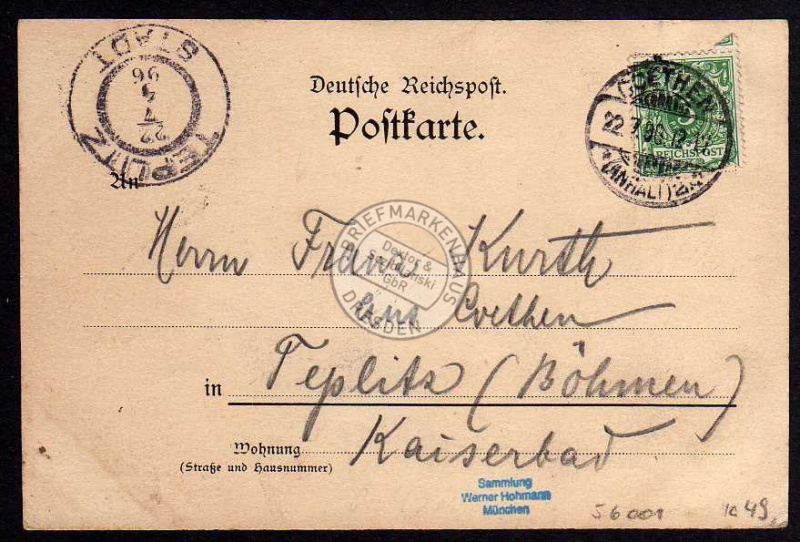 TEPLITZ
STADT
22
7
96
Deutsche Reichspost.
Postkarte.
COETHEN
22.7.96.12
*(ANHALT)2.*
REICHSPOST
An
Herrn Franz Kurth
aus Coethen
in Teplitz (Böhmen)
Kaiserbad
Wohnung
(Straße und Hausnummer)
BRIEFMARKENHAUS
&
GbR
DRESDEN
Sammlung
Werner Hohmann
München
56001
49,